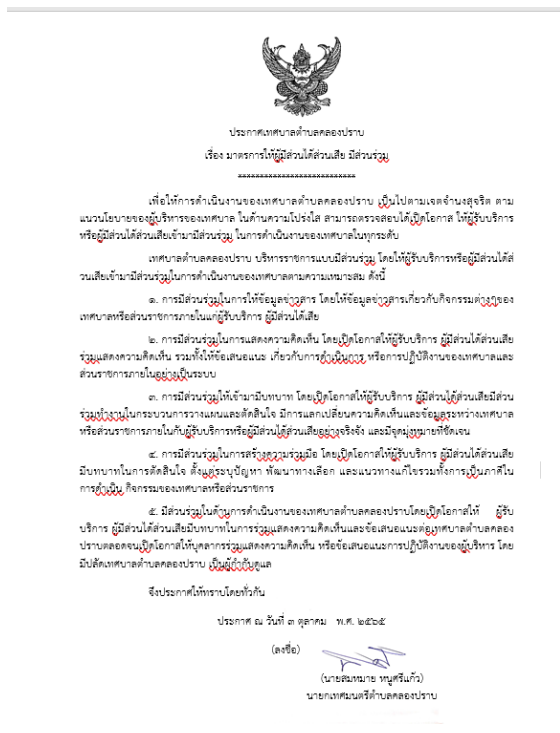 ประกาศเทศบาลตำบลคลองปราบ
เรื่อง มาตรการให้ผู้มีส่วนได้ส่วนเสีย มีส่วนร่วม
เพื่อให้การดำเนินงานของเทศบาลตำบลคลองปราบ เป็นไปตามเจตจำนงสุจริต ตาม
แนวนโยบายของผู้บริหารของเทศบาล ในด้านความโปร่งใส สามารถตรวจสอบได้เปิดโอกาส ให้ผู้รับบริการ
หรือผู้มีส่วนได้ส่วนเสียเข้ามามีส่วนร่วม ในการดำเนินงานของเทศบาลในทุกระดับ
เทศบาลตำบลคลองปราบ บริหารราชการแบบมีส่วนร่วม โดยให้ผู้รับบริการหรือผู้มีส่วนได้ส่
วนเสียเข้ามามีส่วนร่วมในการดำเนินงานของเทศบาลตามความเหมาะสม ดังนี้
๑. การมีส่วนร่วมในการให้ข้อมูลข่าวสาร โดยให้ข้อมูลข่าวสารเกี่ยวกับกิจกรรมต่างๆของ
เทศบาลหรือส่วนราชการภายในแก่ผู้รับบริการ ผู้มีส่วนได้เสีย
๒. การมีส่วนร่วมในการแสดงความคิดเห็น โดยเปิดโอกาสให้ผู้รับบริการ ผู้มีส่วนได้ส่วนเสีย
ร่วมแสดงความคิดเห็น รวมทั้งให้ข้อเสนอแนะ เกี่ยวกับการดำเนินการ หรือการปฏิบัติงานของเทศบาลและ
ส่วนราชการภายในอย่างเป็นระบบ
๓. การมีส่วนร่วมให้เข้ามามีบทบาท โดยเปิดโอกาสให้ผู้รับบริการ ผู้มีส่วนได้ส่วนเสียมีส่วน
ร่วมทำงานในกระบวนการวางแผนและตัดสินใจ มีการแลกเปลี่ยนความคิดเห็นและข้อมูลระหว่างเทศบาล
หรือส่วนราชการภายในกับผู้รับบริการหรือผู้มีส่วนได้ส่วนเสียอย่างจริงจัง และมีจุดมุ่งหมายที่ชัดเจน
๔. การมีส่วนร่วมในการสร้างความร่วมมือ โดยเปิดโอกาสให้ผู้รับบริการ ผู้มีส่วนได้ส่วนเสีย
มีบทบาทในการตัดสินใจ ตั้งแต่ระบุปัญหา พัฒนาทางเลือก และแนวทางแก้ไขรวมทั้งการเป็นภาคีใน
การดำเนิน กิจกรรมของเทศบาลหรือส่วนราชการ
๕. มีส่วนร่วมในด้านการดำเนินงานของเทศบาลตำบลคลองปราบโดยเปิดโอกาสให้ ผู้รับ
บริการ ผู้มีส่วนได้ส่วนเสียมีบทบาทในการร่วมแสดงความคิดเห็นและข้อเสนอแนะต่อเทศบาลตำบลคลอง
ปราบตลอดจนเปิดโอกาสให้บุคลากรร่วมแสดงความคิดเห็น หรือข้อเสนอแนะการปฏิบัติงานของผู้บริหาร โดย
มีปลัดเทศบาลตำบลคลองปราบ เป็นผู้กำกับดูแล
จึงประกาศให้ทราบโดยทั่วกัน
ประกาศ ณ วันที่ ๓ ตุลาคม พ.ศ. ๒๕๖๕
(ลงชื่อ)
(นายสมหมาย หนูศรีแก้ว)
นายกเทศมนตรีตำบลคลองปราบ